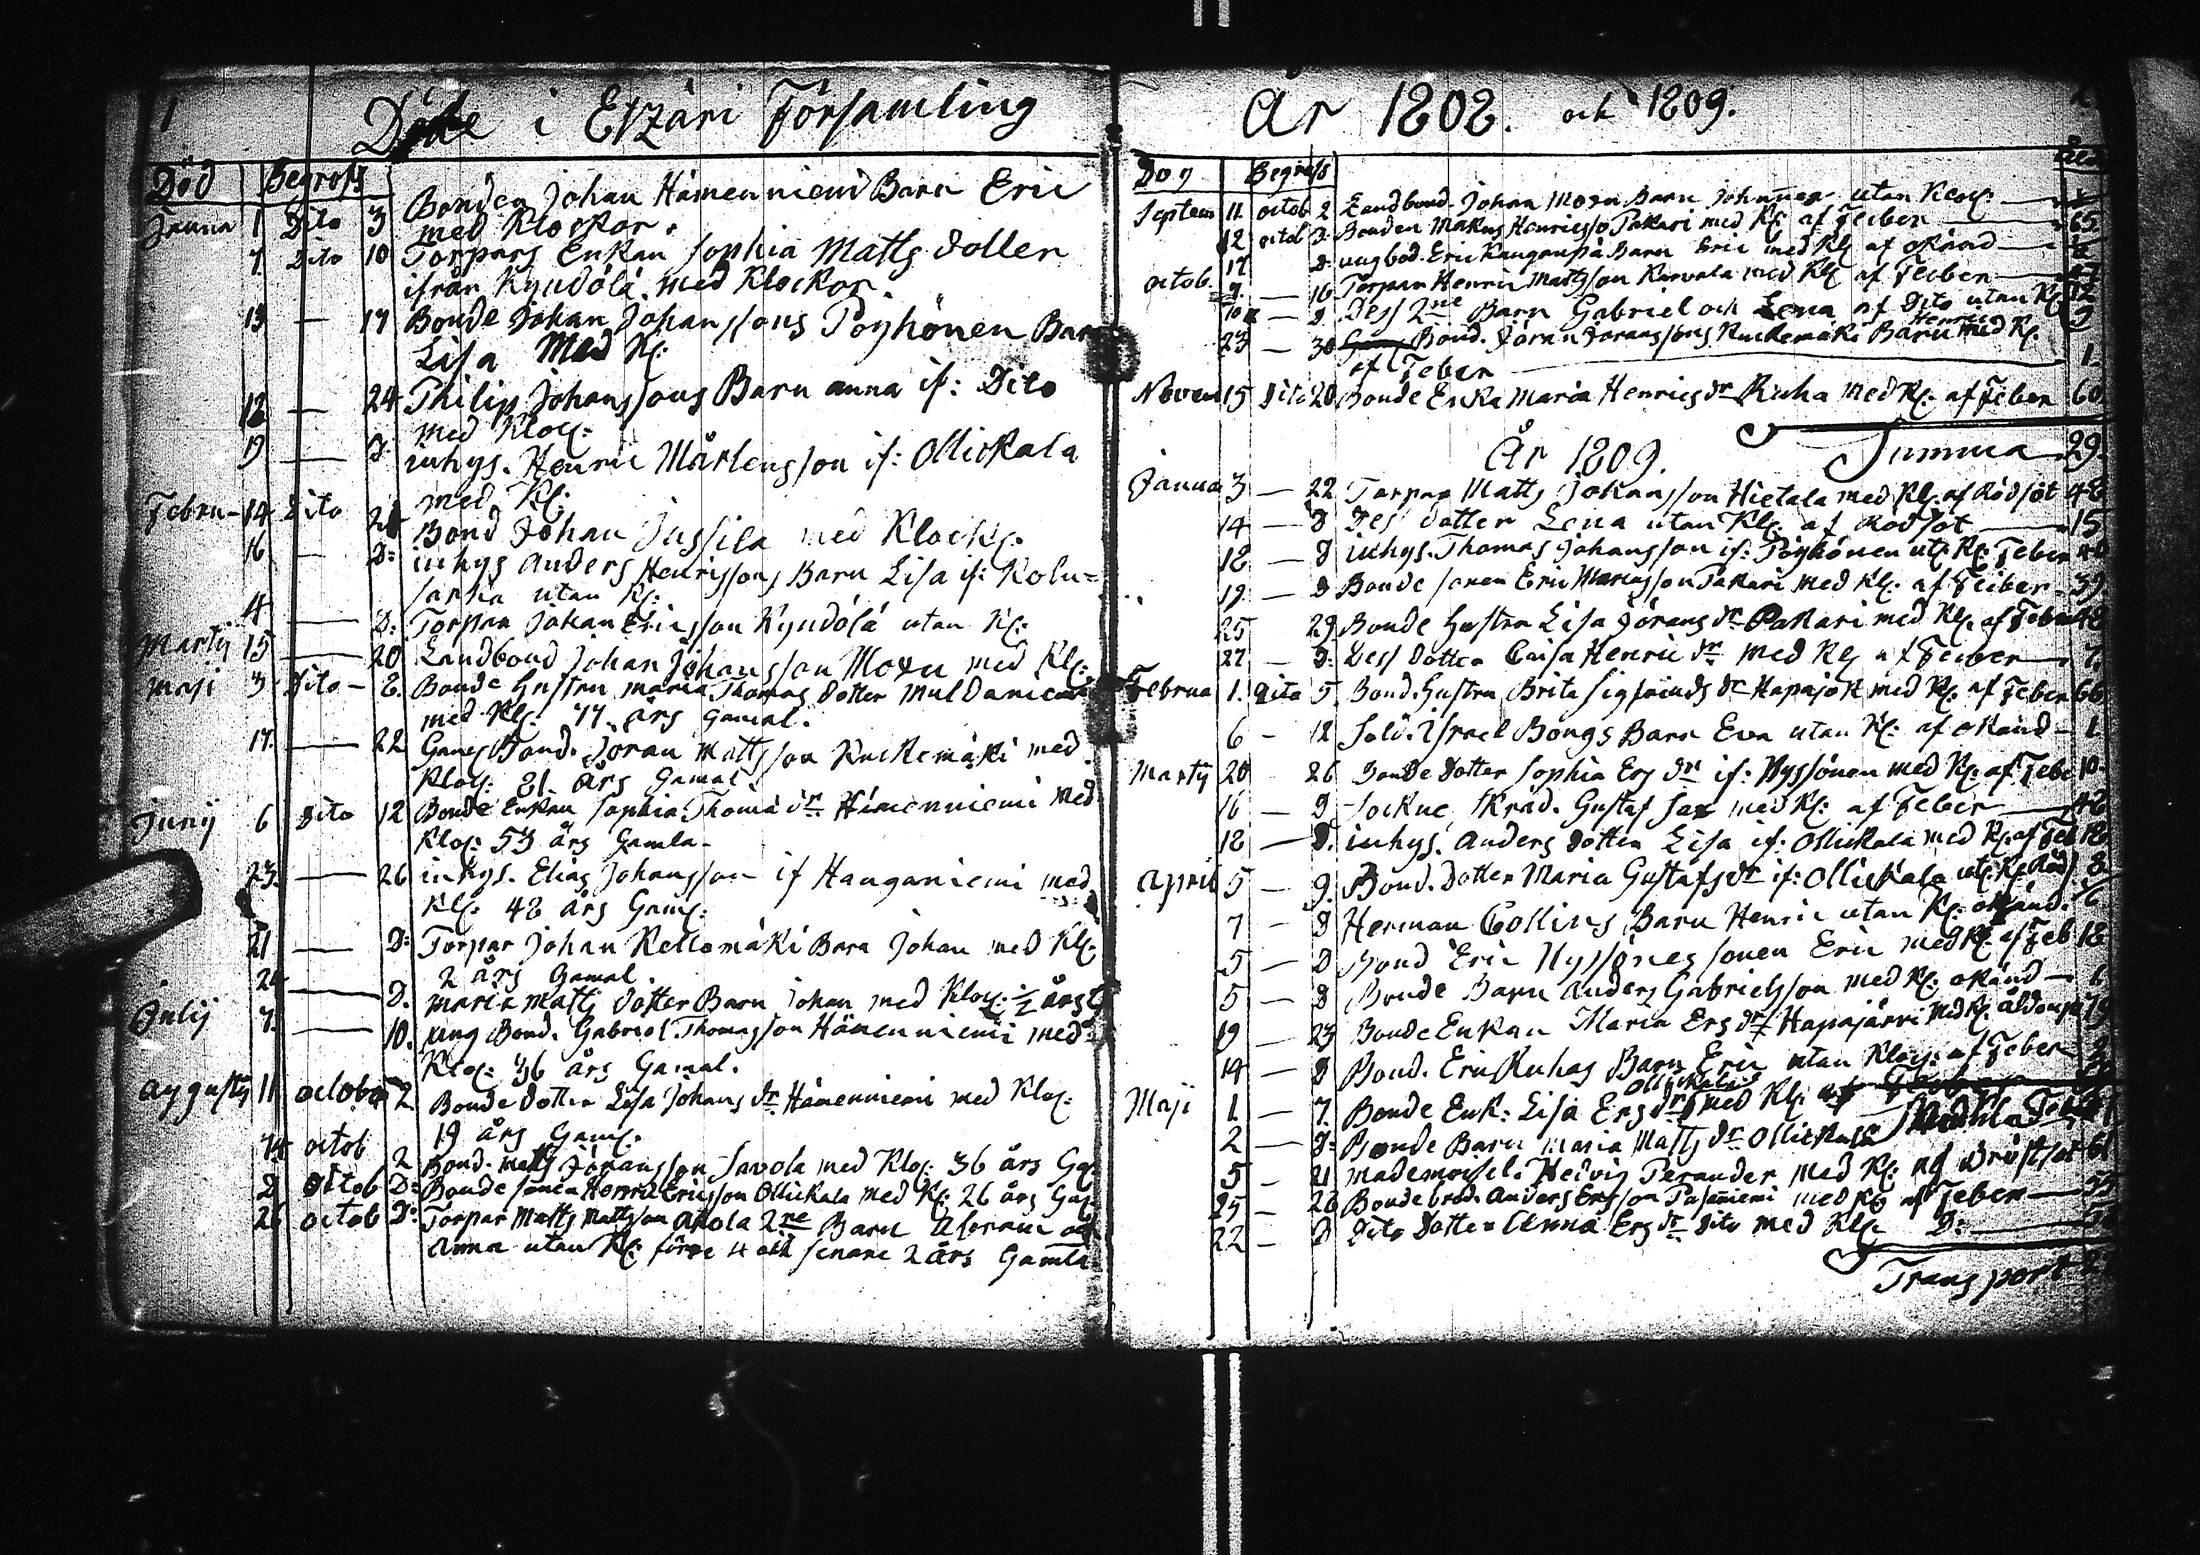 1
Döde i Etzäri Församling
Död Begrofs
Bonden Johan Hämenniemi Barn Eric
Janua 1 Dito 3 med Klockor.
7 Dito 10 Torpars Enkan Sophia Matts Dotter
ifrån Kyndölä. med Klockor.
13 — 17 Bonde Johan Johanssons Poyhönen Barn
Lisa Med Kl:
12 — 24 Philip Johanssons Barn anna if: Dito
med Kloc:
19 — D: inhys. Henric Mårtensson if: Ollickala
med Kl:
Febru- 14 Dito 21 Bond Johan Jussila med Klock:
16 — D: inhys Anders Henrissons Barn Lisa if: Kolu=
sarka utan Kl:
4 — D: Torpar Johan Ericsson Kyndölä utan Kl:
Martij 15 — 20 Landbond Johan Johansson Moxu med Kl:
Maji 3 Dito - 8. Bonde Hustru maria Thomas Dotter
med Kl: 77 års Gamal.
17. — 22 Gam Bond. Jöran Mattsson Kuckemäki med
Kloc: 81 års Gamal
Junij 6 Dito 12 Bonde Enkan Sophia Thoma dr. Hämenniemi Med
Kloc: 53 års Gamla-
23. — 26 inhys. Elias Johansson if Hanganiemi med
Kl: 48 års Gam:
21 — D: Torpar Johan Kellomäki Barn Johan med Kl:
2 års Gamal.
24 — D. maria Matts Dotter Barn Johan med Kloc: ½ års G
Julij 7. — 10. ung Bond. Gabriel Thomasson Hämenniemi med
Kloc: 36 års Gamal.
Augusty 11 october 2. Bonde Dotter Lisa Johans dr. Hämenniemi med Kloc:
19 års Gam:
14 octob 2 Bond. Matts Jöransson Savola med Kloc: 36 års Ga:
2 octob D: Bonde sonen Henric Ericsson Ollickala med Kl: 26 års Gam:
26 octob D: Torpar Matts Mattsson Akola 2ne Barn och
Anna utan Kl: förre 4 och senare 2 års Gamla
År 1808. och 1809.
Dog Begrofs
Septem 11 octob 2 Landbond. Johan Moxu Barn Johannes utan Kloc: —
12 octob D. Bonden Makus Henricsso Pakari med Kl: af Feber — 65
17 D. ungbod. Eric Kangaspä Barn Eric med Kl: af okänd —
octob. 9. — 16 Torpar Henric Mattsson Karvala med Kl: af Feber —
10 — D Dess 2ne Barn Gabriel och Lena af Dito utan Kl:
Henric
23 — 30 Bond. Jöran Joranssons Kuckemäki Barn med Kl.
af Feber — 1.
Novem 15 Dito 20 Bonde Enka Maria Henrics dr Ruha med Kl: af Feber 60
Summa 29.
År 1809.
Janua 3 — 22 Torpar Matts Johansson Hietala med Kl: af Rödsot 48
14 — D Dess Dotter Lena utan Kl: af Rodsot — 15
18 — D inhys. Thomas Johansson if: Pöyhönen ut: Kl: Feber 40
19 — D Bonde sonen Eric Marcusson Pakari med Kl: af Feber. 39.
25 29 Bonde Hustru Lisa Jörans dr Pakari med Kl: af Feber 48
27 — D: Dess Dotter Caisa Henric dr. med Kl: af Feber — 7.
Februa 1. Dito 5. Bond. Hustru Brita Sigfrieds dr Hapajok med Kl: af Feber 66
6 - 12 Sold. Israel Bongs Barn Eva utan Kl: af okänd - 1.
Martij 20 26 Bonde Dotter Sophia Ers dr if: Hyssönen med Kl: af Feb: 10.
16 — D Sockne Skräd. Gustaf Sax med Kl: af Feber — 48
18 — D. inhys. Anders Dotter Lisa if: Ollickala med Kl: af Feb 18
April 5 — 9. Bond. Dotter Maria Gustafs dr if: Ollickala ut: Kl: Röd: 8
7 — D Herman Collins Barn Henric utan Kl: okänd.
5 — D Bond Eric Hyssönes sonen Eric med Kl: af Feb 18
5 — D Bonde Barn Anders Gabrielsson med Kl: okänd —
19 — 23 Bonde Enkan Maria Ers dr. Hapajärvi med Kl: 79
14 — D Bond. Eric Ruhas Barn Eric utan Kloc: af Feber
Ollickala
Maji 1 — 7. Bonde Enk: Lisa Ers dr med Kl:
2 — D: Bonde Barn Maria Matts dr Ollickala
5 - 21 mademoisel. Hedvig Perander med Kl: af Bröstsot
25 — 28 Bonde brod. Anders Ersson med Kl: af Feber —
22 — D Dito Dotter Anna Ers dr Dito med Kl: D: —
Transport